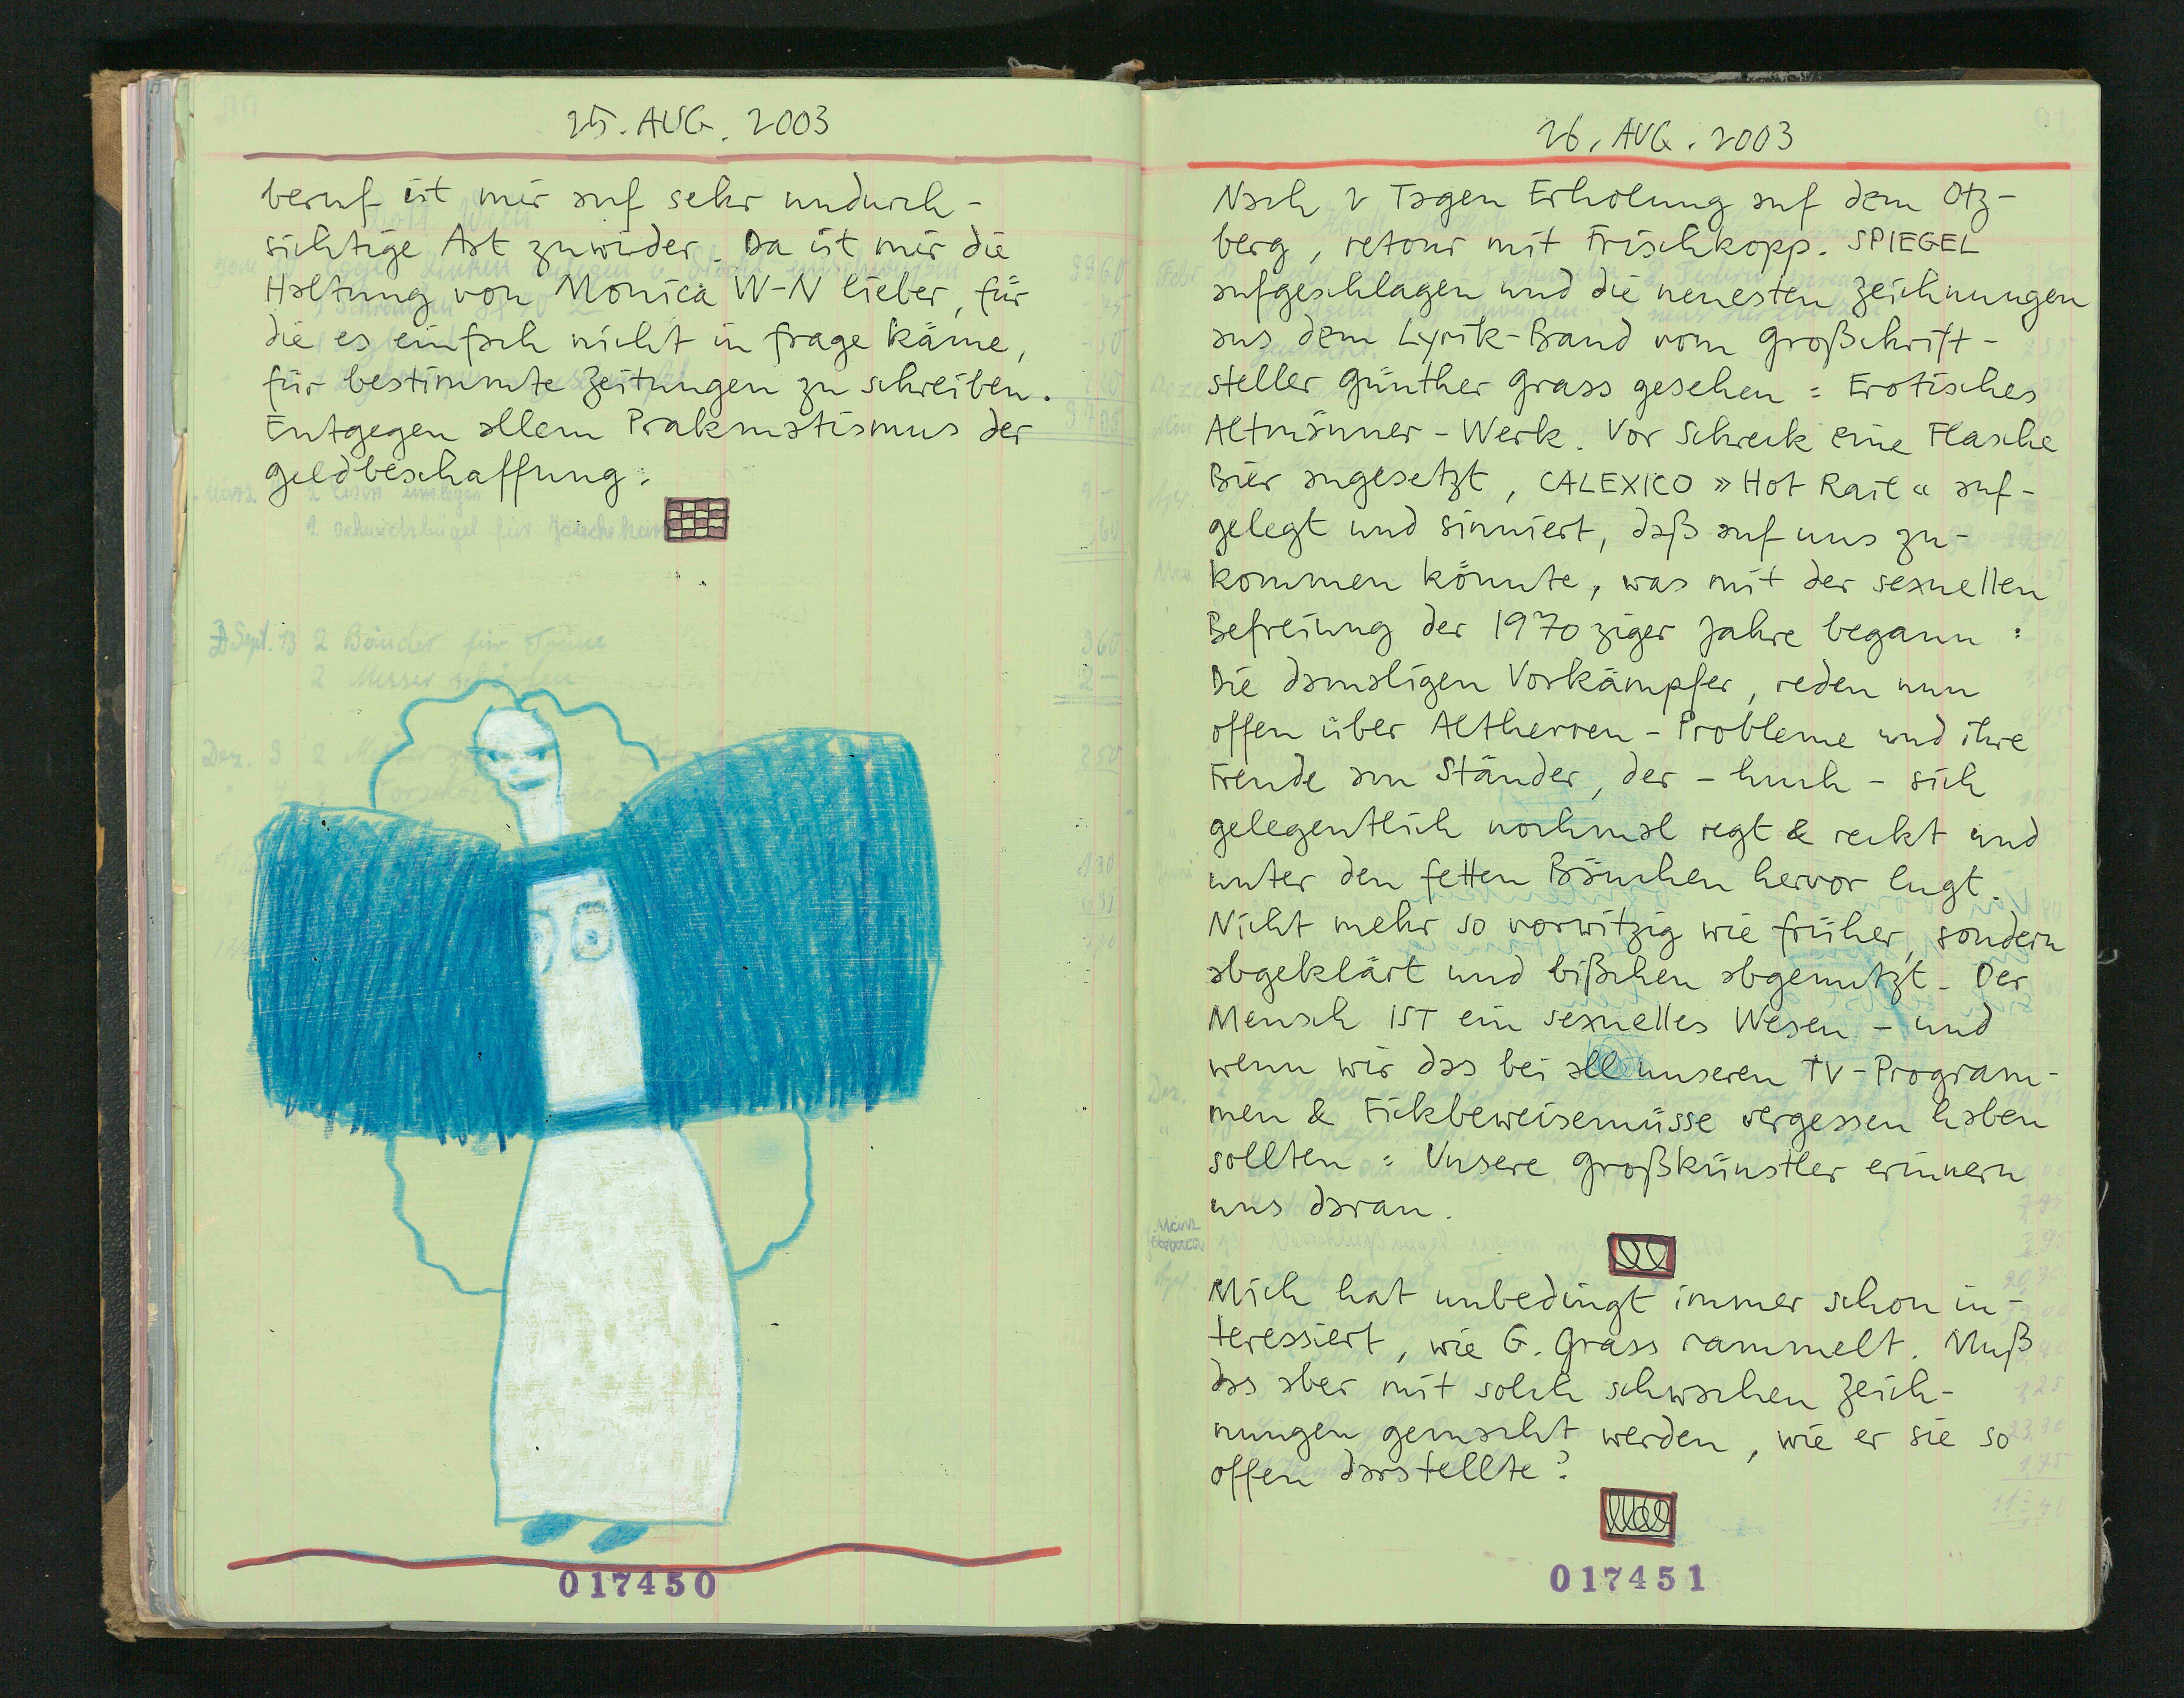 25. AUG. 2003
beruf ist mir auf sehr undurch-
sichtige Art zuwider. Da ist mir die
Haltung von Monica W-N lieber, für
die es einfach nicht in frage käme,
für bestimmte Zeitungen zu schreiben.
Entgegen allem Prakmatismus der
geldbeschaffung.
2 Eisen
1 Scheidbügel für
Sept. 13 2 Bänder für Tonne 360
2 Messer schärfen 2-
Dez. 9 2 250
017450
26. AUG. 2003
Nach 2 Tagen Erholung auf dem Otz-
berg, retour mit Frischkopp. SPIEGEL
aufgeschlagen und die neuesten Zeichnungen
aus dem Lyrik-Band vom Großschrift-
steller Günther Grass gesehen: Erotisches
Altmänner-Werk. Vor Schreck eine Flasche
Bier angesetzt, CALEXICO »Hot Rail« auf-
gelegt und sinniert, daß auf uns zu-
kommen könnte, was mit der sexuellen
Befreiung der 1970ziger Jahre begann:
Die damaligen Vorkämpfer, reden nun
offen über Altherren-Probleme und ihre
Freude am Ständer, der - huch - sich
gelegentlich nochmal regt & reckt und
unter den fetten Bäuchen hervor lugt.
Nicht mehr so vorwitzig wie früher, sondern
abgeklärt und bißchen abgenutzt. Der
Mensch IST ein sexuelles Wesen - und
wenn wir das bei all unseren TV-Program-
men & Fickbeweisemüsse vergessen haben
sollten: Unsere Großkünstler erinnern
uns daran.
Mich hat unbedingt immer schon in-
teressiert, wie G. Grass rammelt. Muß
das aber mit solch schwachen Zeich-
nungen gemacht werden, wie er sie so
offen darstellte?
017451